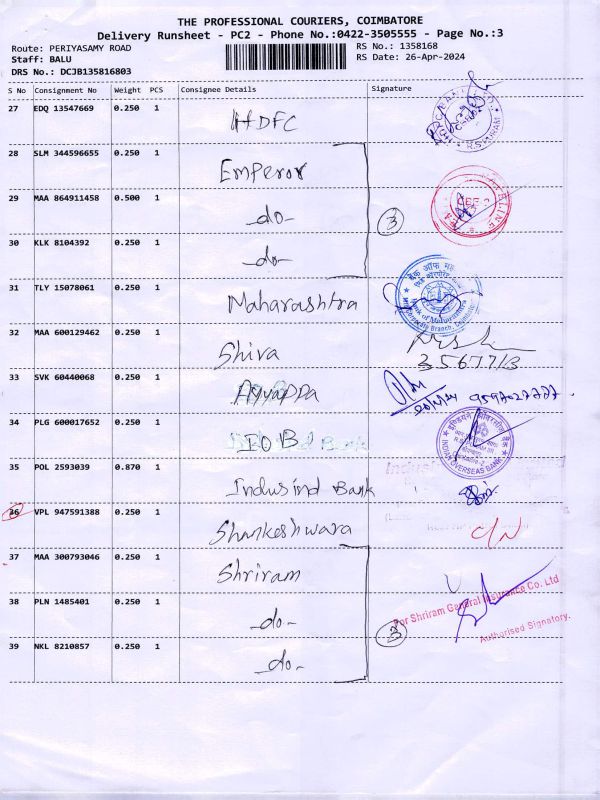 THE PROFESSIONAL COURIERS, COIMBATORE
Delivery Runsheet - PC2 - Phone No.:0422-3505555 - Page No.:3
Route: PERIYASAMY ROAD
RS No.: 1358168
Staff: BALU
RS Date: 26-Apr-2024
DRS No.: DCJB135816803
S No Consignment No Weight PCS Consignee Details Signature
27 EDQ 13547669 0.250 1 HDFC
28 SLM 344596655 0.250 1 Emperor
29 MAA 864911458 0.500 1 -do- 3
30 KLK 8104392 0.250 1 -do-
31 TLY 15078061 0.250 1 Maharashtra
Bank of Maharashtra
32 MAA 600129462 0.250 1 Shiva
33 SVK 60440068 0.250 1 Ayyappa
34 PLG 600017652 0.250 1 IOB
INDIAN OVERSEAS BANK
35 POL 2593039 0.870 1 Indusind Bank
36 VPL 947591388 0.250 1 Shankeshwara C/N
37 MAA 300793046 0.250 1 Shriram
38 PLN 1485401 0.250 1 -do- 3
For Shriram General Insurance Co. Ltd
Authorised Signatory.
39 NKL 8210857 0.250 1 -do-